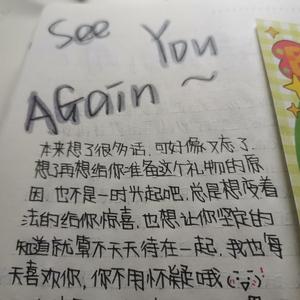 See You
AGain ~
本来想了很多话,可好像又忘了
想了再想给你准备这个礼物的原
因,也不是一时兴起吧,总是想变着
法的给你惊喜,也想让你坚定的
知道就算不天天待在一起,我也每
天喜欢你,你不用怀疑哦